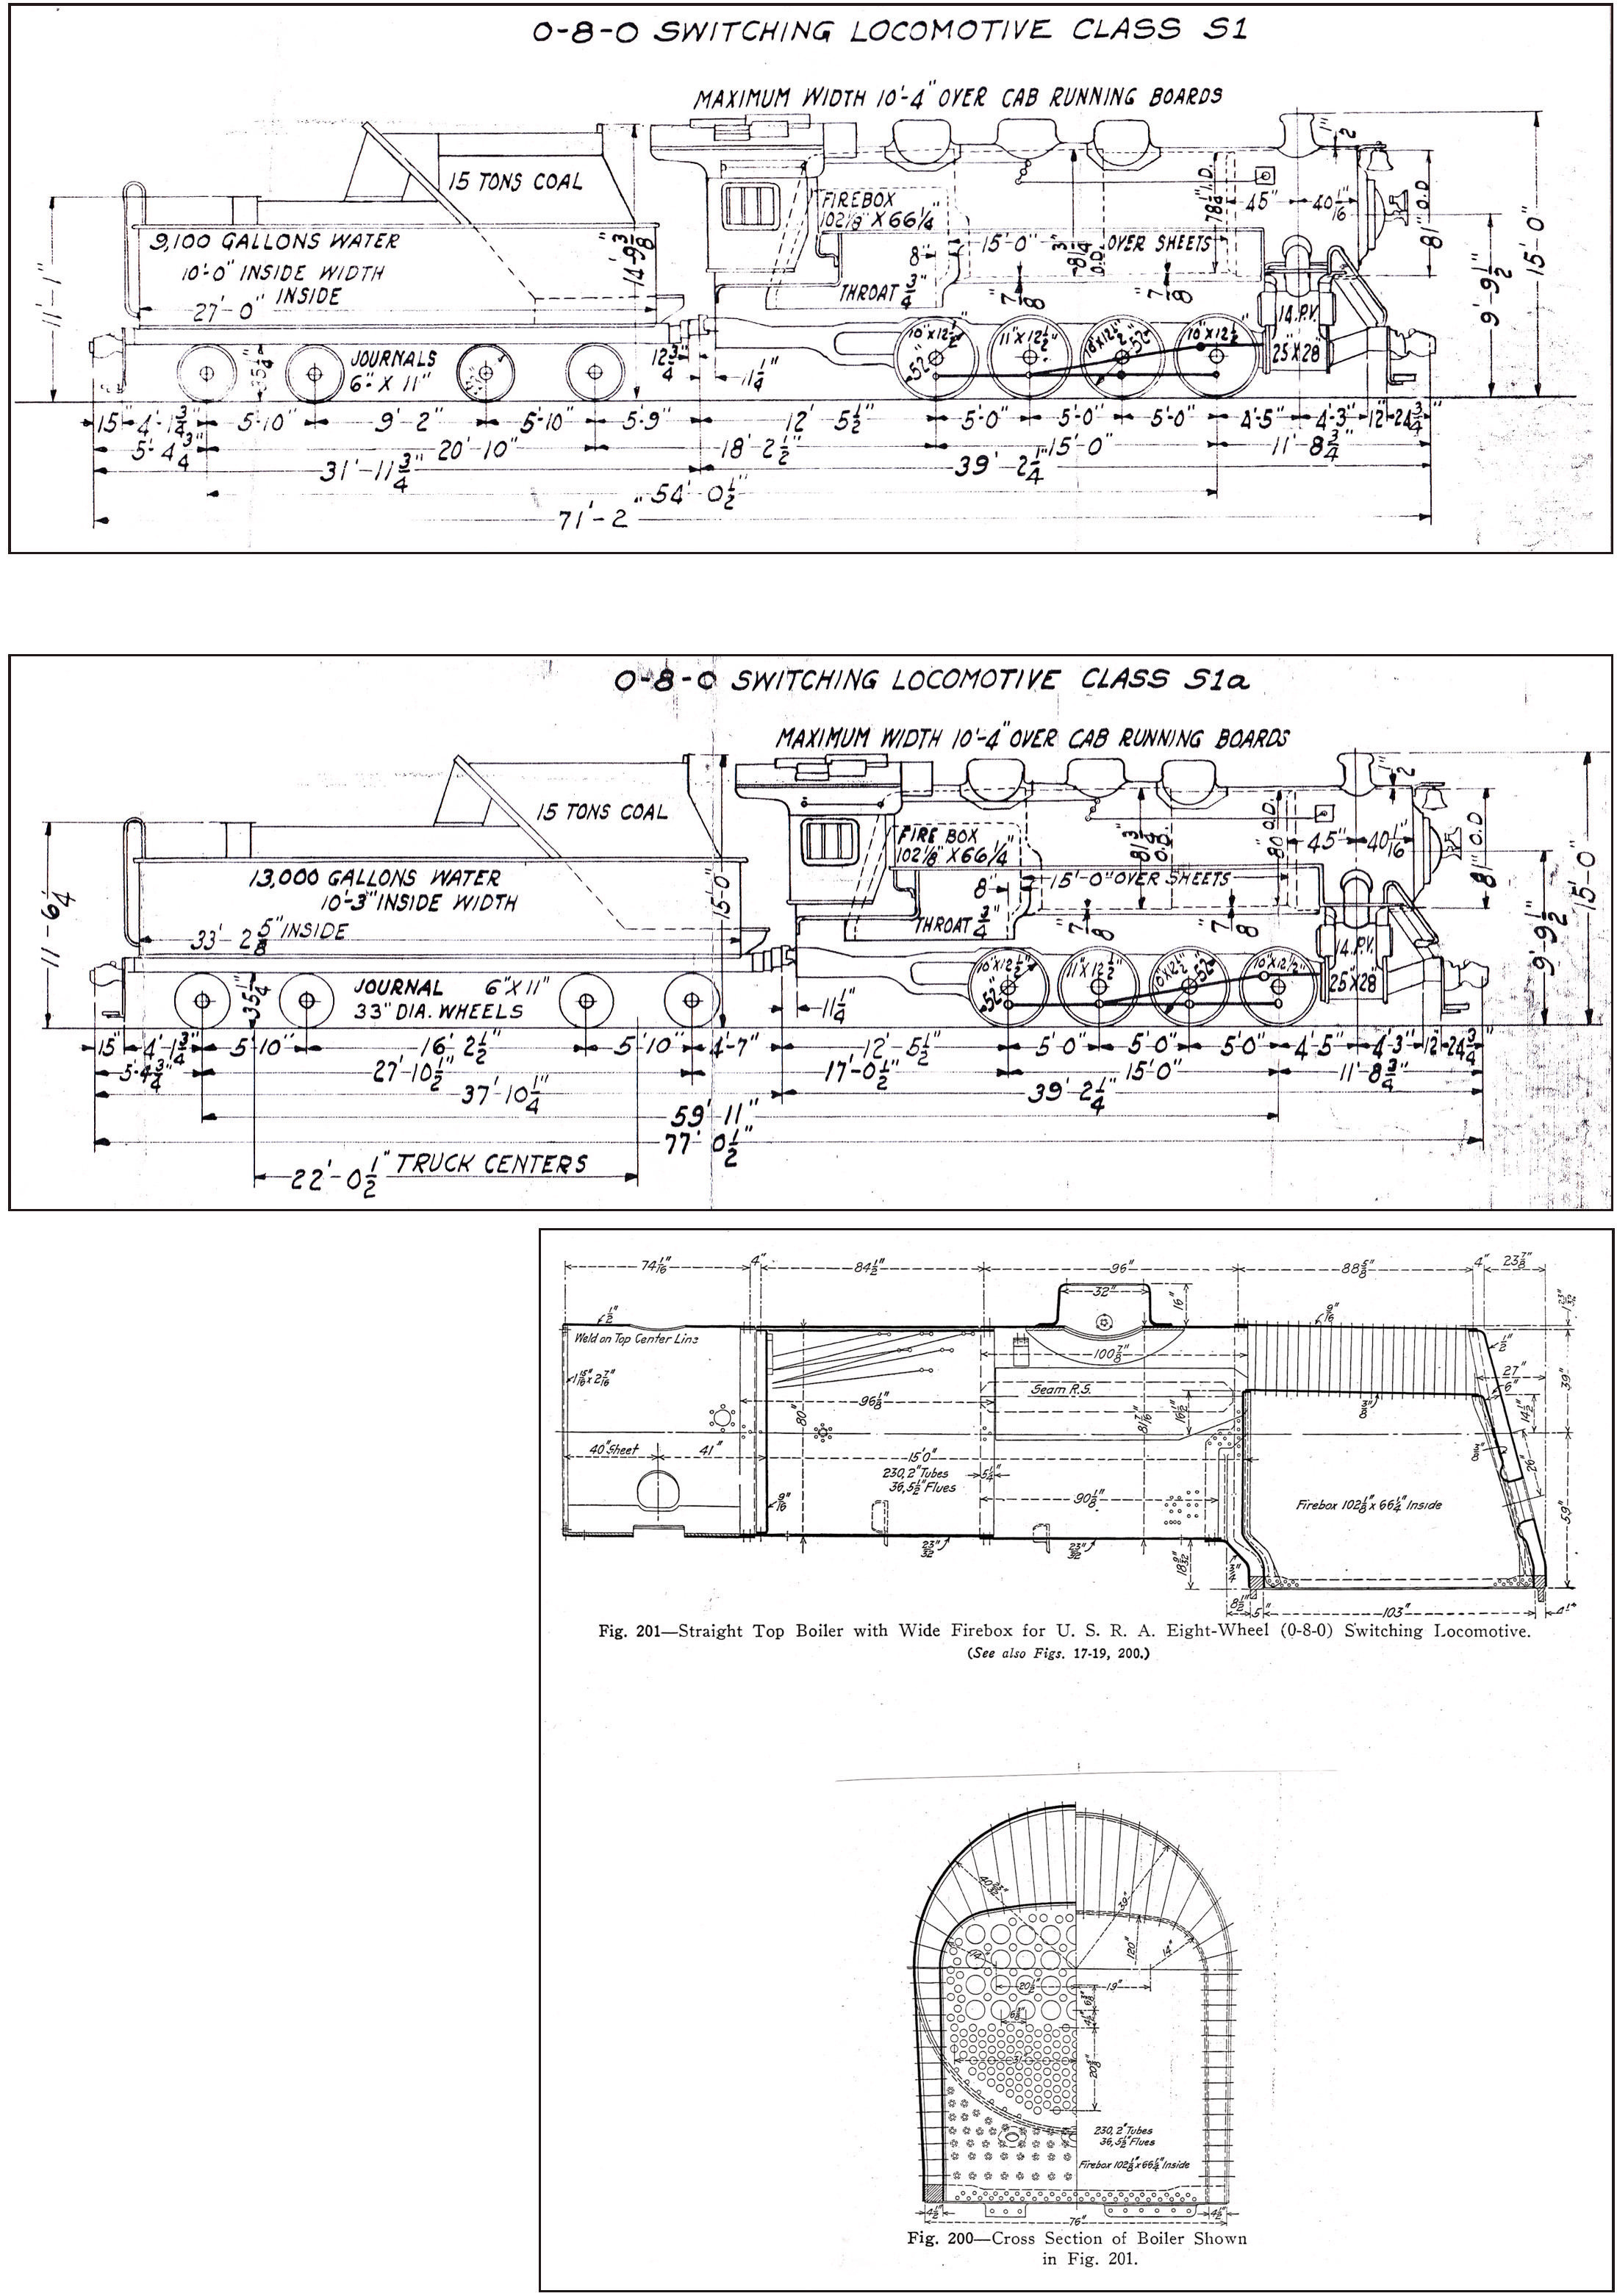 0-8-0 SWITCHING LOCOMOTIVE CLASS S1
MAXIMUM WIDTH 10'-4" OVER CAB RUNNING BOARDS
15 TONS COAL
9,100 GALLONS WATER
10'-0" INSIDE WIDTH
27'-0" INSIDE
11'-1"
14'-9 3/8"
FIREBOX
102 1/8" X 66 1/4"
8"
15'-0" OVER SHEETS
THROAT 3/4"
7/8"
7/8"
81 3/4" O.D.
45"
40 1/16"
81" O.D.
1/2"
9'-9 1/2"
15'-0"
14 P.V.
25"X28"
JOURNALS
6" X 11"
35 1/4"
12 3/4"
11 1/4"
10"X12 1/2"
11"X12 1/2"
10"X12 1/2"
10"X12 1/2"
52"
52"
15" 4'-1 3/4" 5'-10" 9'-2" 5'-10" 5'-9" 12'-5 1/2" 5'-0" 5'-0" 5'-0" 4'-5" 4'-3" 12" 24 3/4"
5'-4 3/4" 20'-10" 18'-2 1/2" 15'-0" 11'-8 3/4"
31'-11 3/4" 39'-2 1/4"
54'-0 1/2"
71'-2"
0-8-0 SWITCHING LOCOMOTIVE CLASS S1a
MAXIMUM WIDTH 10'-4" OVER CAB RUNNING BOARDS
15 TONS COAL
13,000 GALLONS WATER
10'-3" INSIDE WIDTH
33'-2 5/8" INSIDE
11'-6 1/4"
15'-0"
FIRE BOX
102 1/8" X 66 1/4"
8"
15'-0" OVER SHEETS
THROAT 3/4"
7/8"
7/8"
81 3/4" O.D.
80" O.D.
45"
40 1/16"
81" O.D.
1/2"
9'-9 1/2"
15'-0"
14 P.V.
25"X28"
JOURNAL 6"X11"
33" DIA. WHEELS
35 1/4"
11 1/4"
10"X12 1/2"
11"X12 1/2"
10"X12 1/2"
10"X12 1/2"
52"
52"
15" 4'-1 3/4" 5'-10" 16'-2 1/2" 5'-10" 4'-7" 12'-5 1/2" 5'-0" 5'-0" 5'-0" 4'-5" 4'-3" 12" 24 3/4"
5'-4 3/4" 27'-10 1/2" 17'-0 1/2" 15'-0" 11'-8 3/4"
37'-10 1/4" 39'-2 1/4"
59'-11"
77'-0 1/2"
22'-0 1/2" TRUCK CENTERS
74 1/16" 4" 84 1/2" 96" 88 5/8" 4" 23 7/8"
1/2"
32"
16"
9/16"
Weld on Top Center Line
1 15/16 x 2 7/16"
100 7/8"
1/2"
27"
6"
39"
Seam R.S.
96 1/8"
80"
16 1/2"
3/8"
14 1/2"
40" Sheet
41"
15'0"
230, 2" Tubes
36, 5 1/2" Flues
5 1/4"
26"
9/16"
90 1/8"
Firebox 102 1/8" x 66 1/4" Inside
59"
23/32"
23/32"
18 9/32"
3/4"
8 1/2" 5" 103"
Fig. 201—Straight Top Boiler with Wide Firebox for U. S. R. A. Eight-Wheel (0-8-0) Switching Locomotive.
(See also Figs. 17-19, 200.)
40 23/32"
39"
14"
120"
14"
20 1/2"
19"
20 5/8"
230, 2" Tubes
36, 5 1/2" Flues
Firebox 102 1/8" x 66 1/4" Inside
4 1/2"
4 1/2"
76"
Fig. 200—Cross Section of Boiler Shown
in Fig. 201.